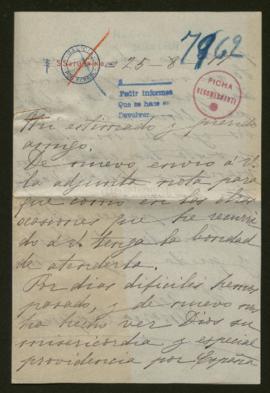 7962
25-8
FICHA
A
Pedir informes
Que se hace su
Devolver
Mi estimado y querido
amigo.
De nuevo envio a V.
la adjunta nota para
que como en las otras
ocasiones que he recurri
do a V. tenga la bondad
de atenderla.
Por dias dificiles hemos
pasado, y de nuevo nos
ha hecho ver Dios su
misericordia y especial
providencia por España